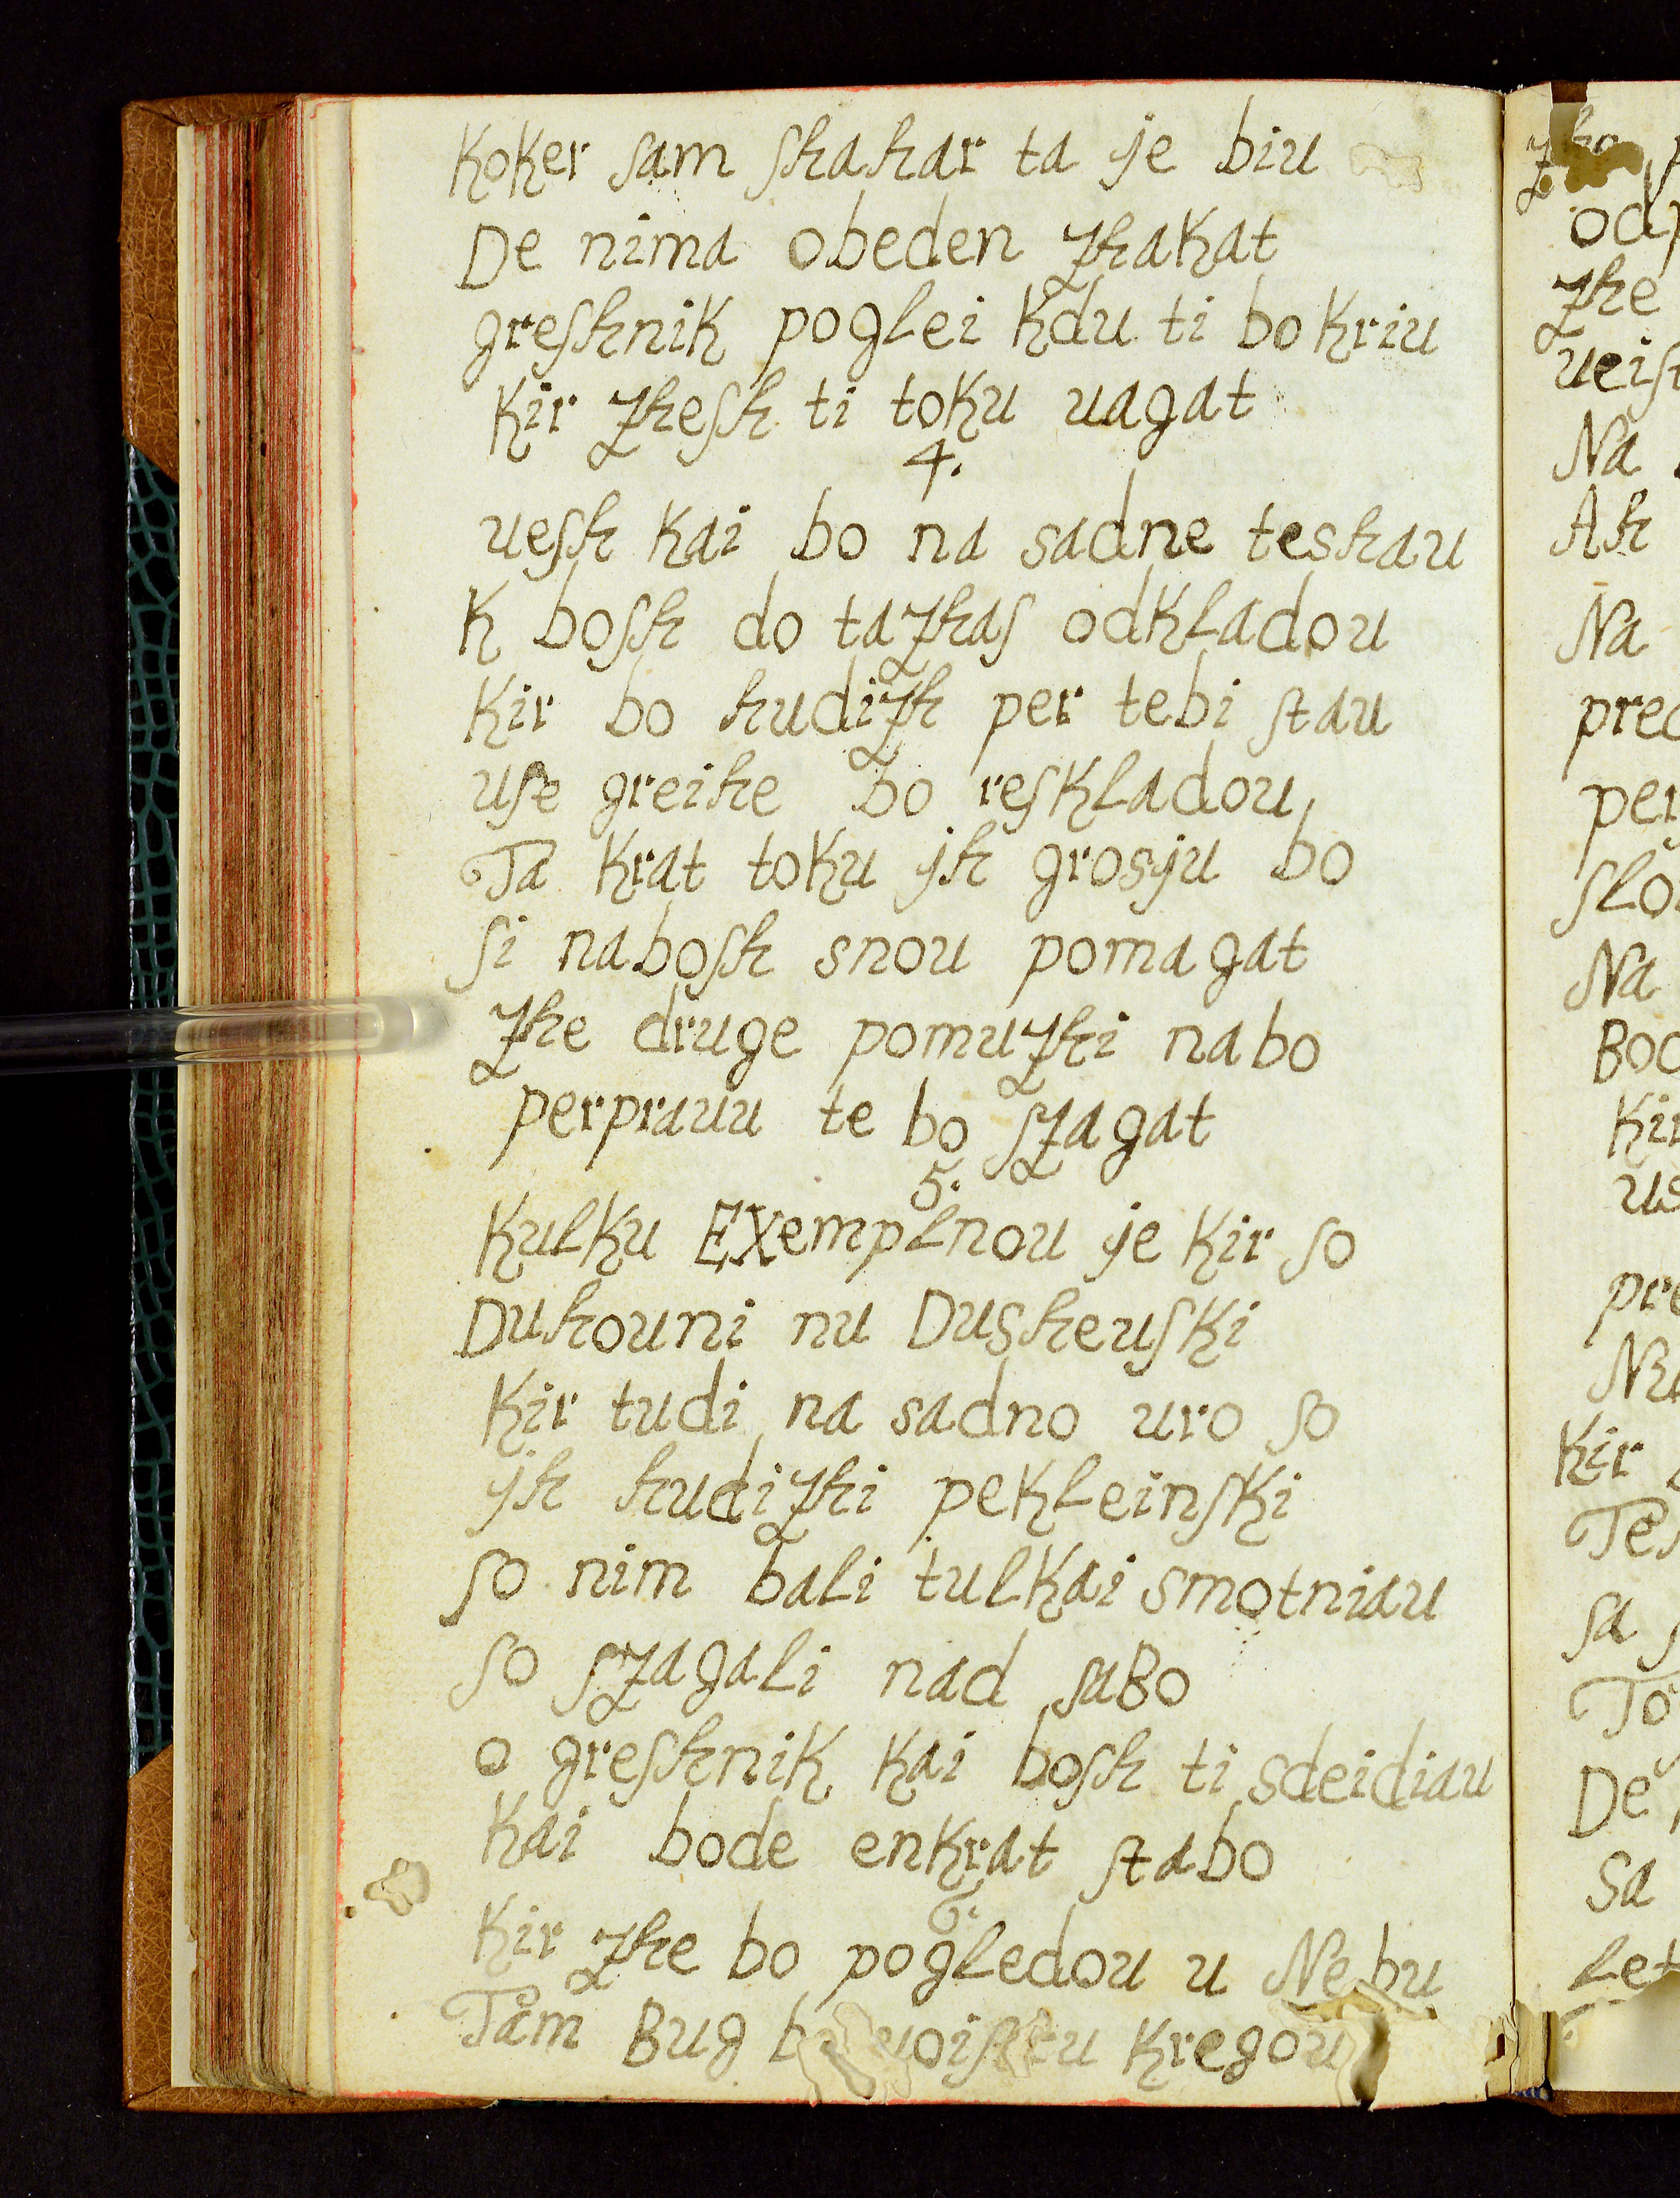 Koker sam ſhahar ta je biu
De nima obeden Zhakat
greſhnik poglei kdu ti bo kriu
Kir Zheſh ti toku uagat
4.
ueſh kai bo na sadne teshau
K boſh do taZhaſ odkladou
Kir bo hudiZh per tebi ſtau
uſe greihe bo reſkladou,
Ta krat toku jh grosju bo
ſi naboſh snou pomagat
Zhe druge pomuZhi nabo
perprauu te bo ſZagat
5.
Kulku Exemplnou je kir ſo
Duhouni nu Dusheuſki
Kir tudi na sadno uro ſo
jh hudiZhi pekleinſki
ſo nim bali tulkai smotniau
ſo ſZagali nad ſabo
o greſhnik kai boſh ti sdeidiau
Kai bode enkrat ſtabo
6.
Kir Zhe bo pogledou u Nebu
Tam Bug kregou
od
Zhe
Na
Ah
Na
Na
Kir
sa
To
De
Sa